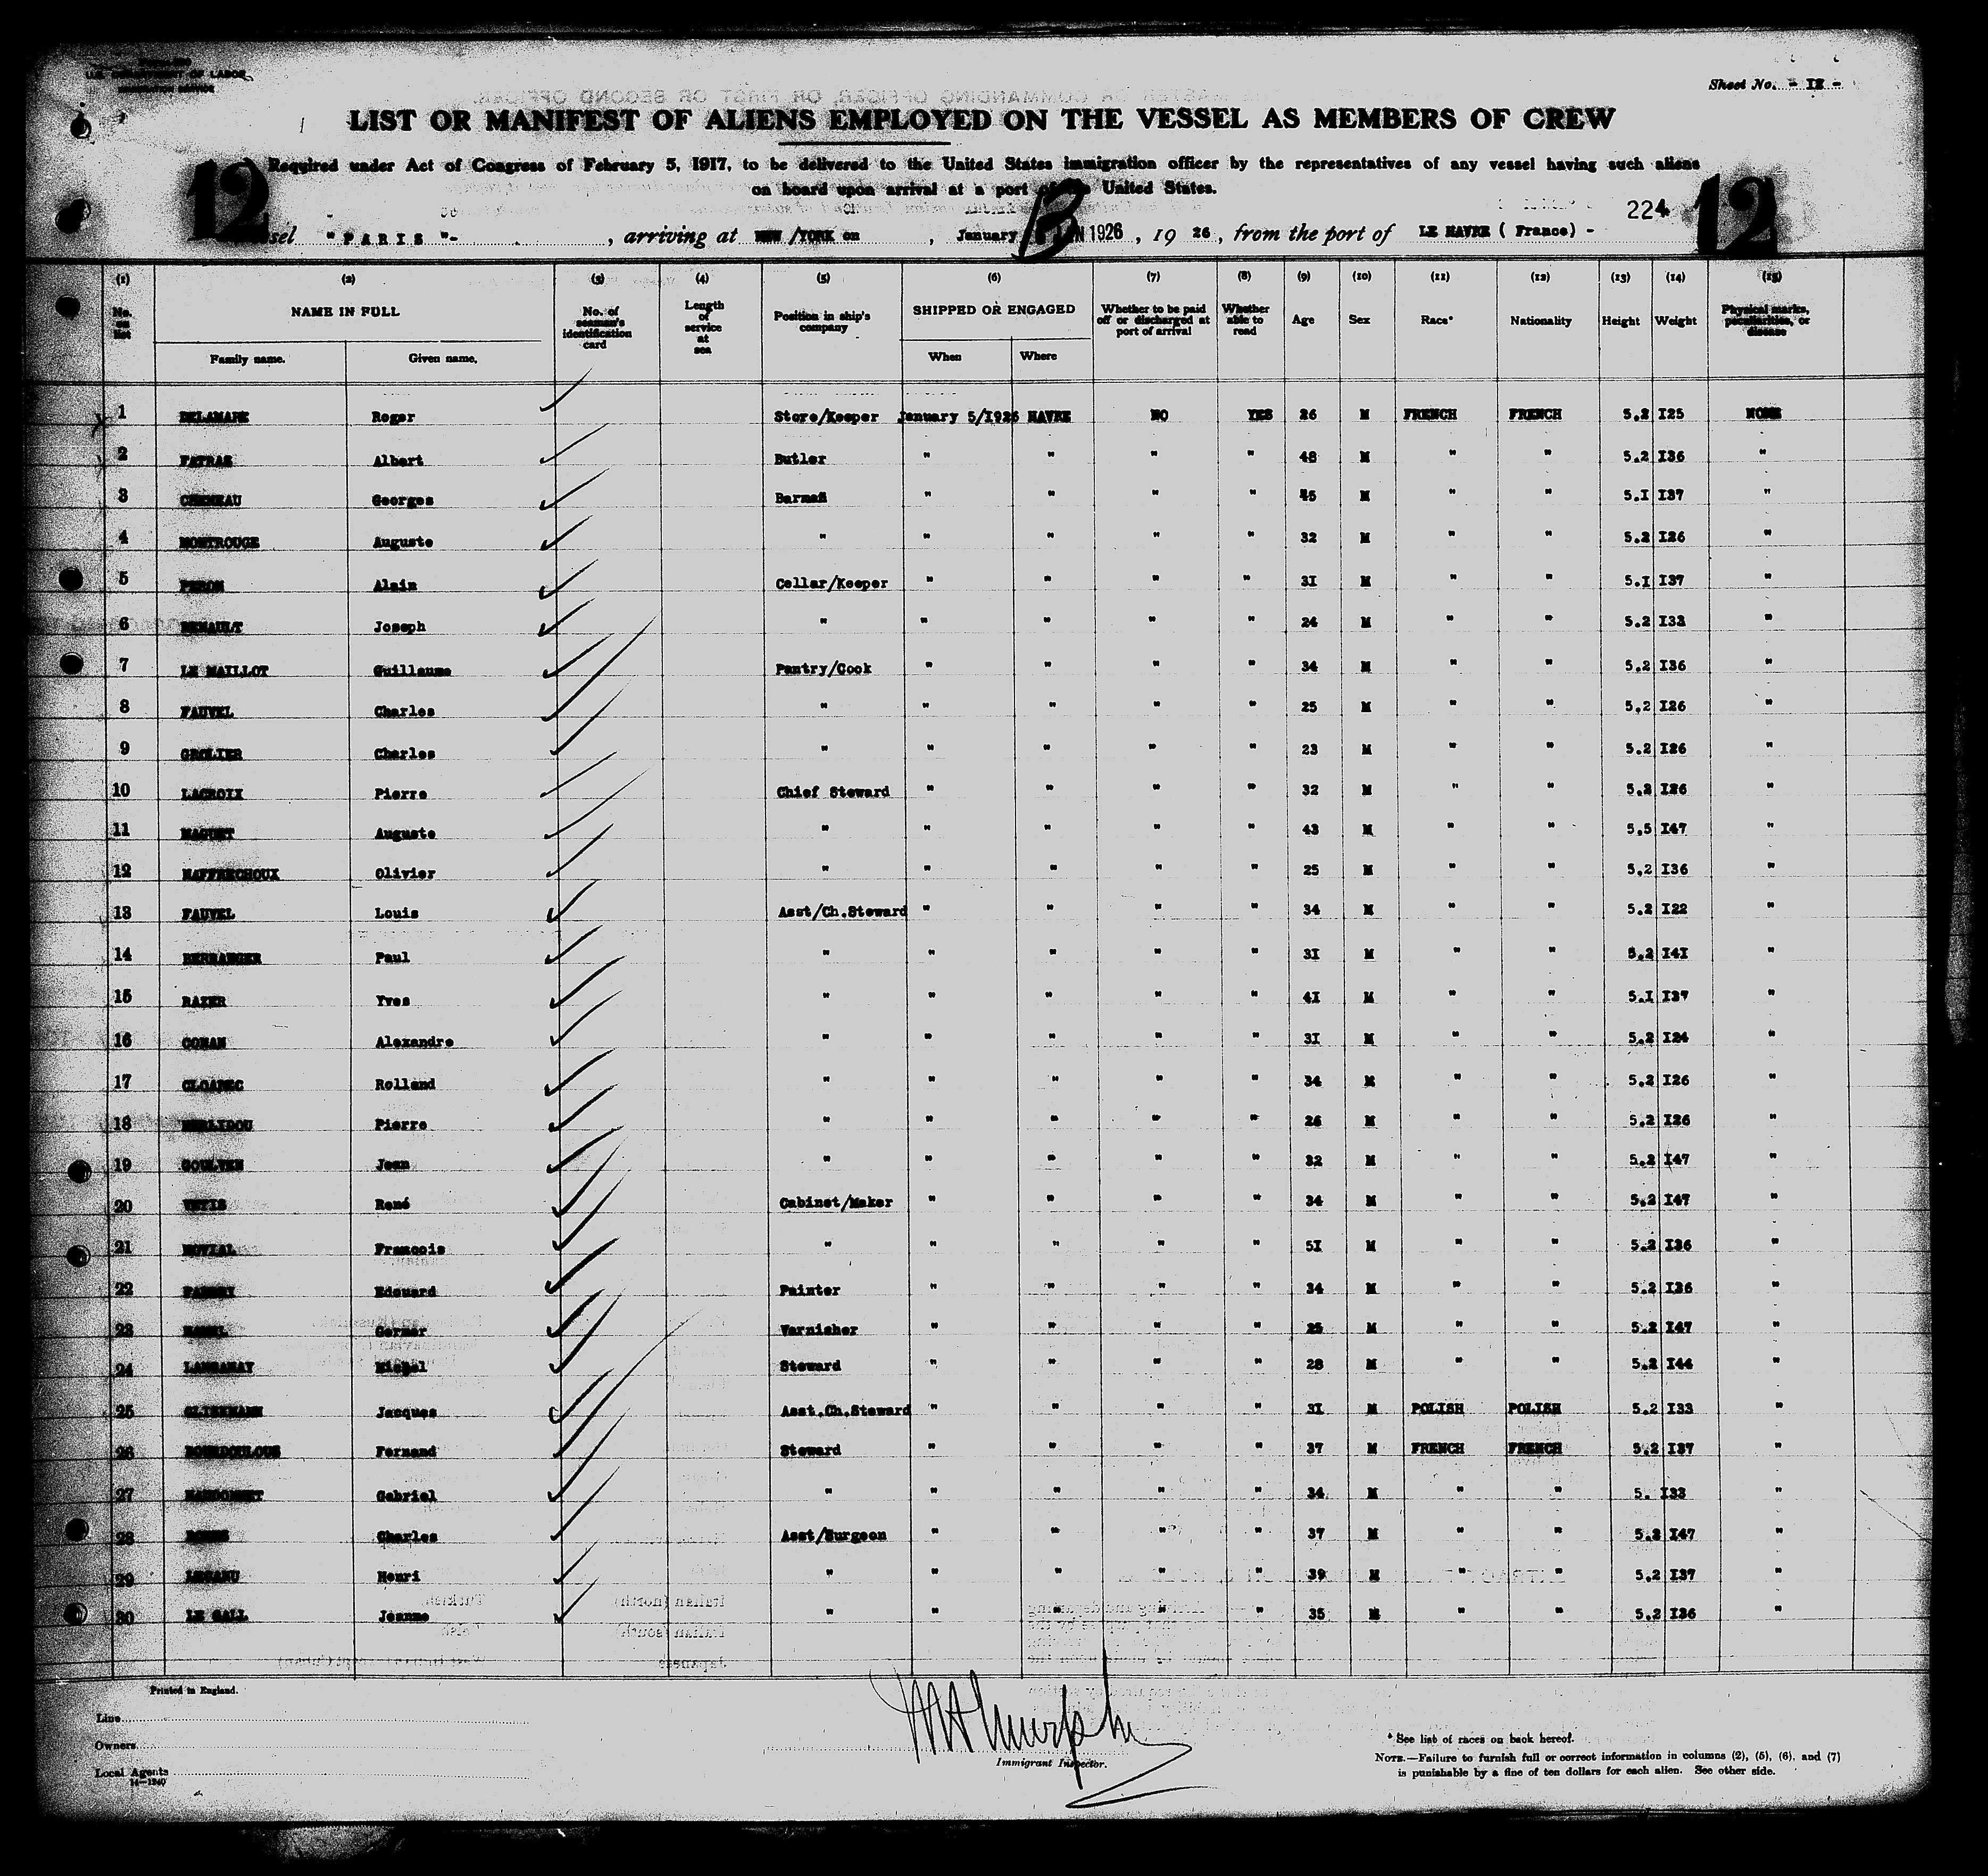 U.S. DEPARTMENT OF LABOR
IMMIGRATION SERVICE
Sheet No. - I2 -
LIST OR MANIFEST OF ALIENS EMPLOYED ON THE VESSEL AS MEMBERS OF CREW
Required under Act of Congress of February 5, 1917, to be delivered to the United States immigration officer by the representatives of any vessel having such aliens
on board upon arrival at a port United States.
12 12
224
"PARIS"-, arriving at NEW/YORK on, January JAN 1926, 19 26, from the port of LE HAVRE (France) -
(1) (2) (3) (4) (5) (6) (7) (8) (9) (10) (11) (12) (13) (14) (15)
No. on list NAME IN FULL No. of seaman's identification card Length of service at sea Position in ship's company SHIPPED OR ENGAGED Whether to be paid off or discharged at port of arrival Whether able to read Age Sex Race* Nationality Height Weight Physical marks, peculiarities, or disease
Family name. Given name. When Where
1 DELAMARE Roger Store/Keeper January 5/I926 HAVRE NO YES 26 M FRENCH FRENCH 5.2 I25 NONE
2 Albert Butler " " " " 48 M " " 5.2 I36 "
3 Georges Barman " " " " 45 M " " 5.I I37 "
4 MONTROUGE Auguste " " " " " 32 M " " 5.2 I26 "
5 PERON Alain Cellar/Keeper " " " " 3I M " " 5.I I37 "
6 Joseph " " " " " 24 M " " 5.2 I33 "
7 LE MAILLOT Guillaume Pantry/Cook " " " " 34 M " " 5.2 I36 "
8 FAUVEL Charles " " " " " 25 M " " 5.2 I26 "
9 GROLIER Charles " " " " " 23 M " " 5.2 I26 "
10 LACROIX Pierre Chief Steward " " " " 32 M " " 5.2 I26 "
11 Auguste " " " " " 43 M " " 5.5 I47 "
12 MAFFRECHOUX Olivier " " " " " 25 M " " 5.2 I36 "
13 FAUVEL Louis Asst/Ch.Steward " " " " 34 M " " 5.2 I22 "
14 BERRANGER Paul " " " " " 3I M " " 5.2 I4I "
15 RAZER Yves " " " " " 4I M " " 5.I I37 "
16 CONAN Alexandre " " " " " 3I M " " 5.2 I24 "
17 CLOAREC Rolland " " " " " 34 M " " 5.2 I26 "
18 Pierre " " " " " 26 M " " 5.2 I26 "
19 GOULVEN Jean " " " " " 32 M " " 5.2 I47 "
20 René Cabinet/Maker " " " " 34 M " " 5.2 I47 "
21 François " " " " " 5I M " " 5.2 I36 "
22 Edouard Painter " " " " 34 M " " 5.2 I36 "
23 Varnisher " " " " 25 M " " 5.2 I47 "
24 Michel Steward " " " " 28 M " " 5.2 I44 "
25 Jacques Asst.Ch.Steward " " " " 3I M POLISH POLISH 5.2 I33 "
26 Fernand Steward " " " " 37 M FRENCH FRENCH 5.2 I37 "
27 Gabriel " " " " " 34 M " " 5. I33 "
28 Charles Asst/Surgeon " " " " 37 M " " 5.2 I47 "
29 Henri " " " " " 39 M " " 5.2 I37 "
30 LE GALL Jeanne " " " " " 35 M " " 5.2 I36 "
Printed in England.
Line
Owners
Local Agents
14—1240
Immigrant Inspector.
* See list of races on back hereof.
NOTE.—Failure to furnish full or correct information in columns (2), (5), (6), and (7)
is punishable by a fine of ten dollars for each alien. See other side.